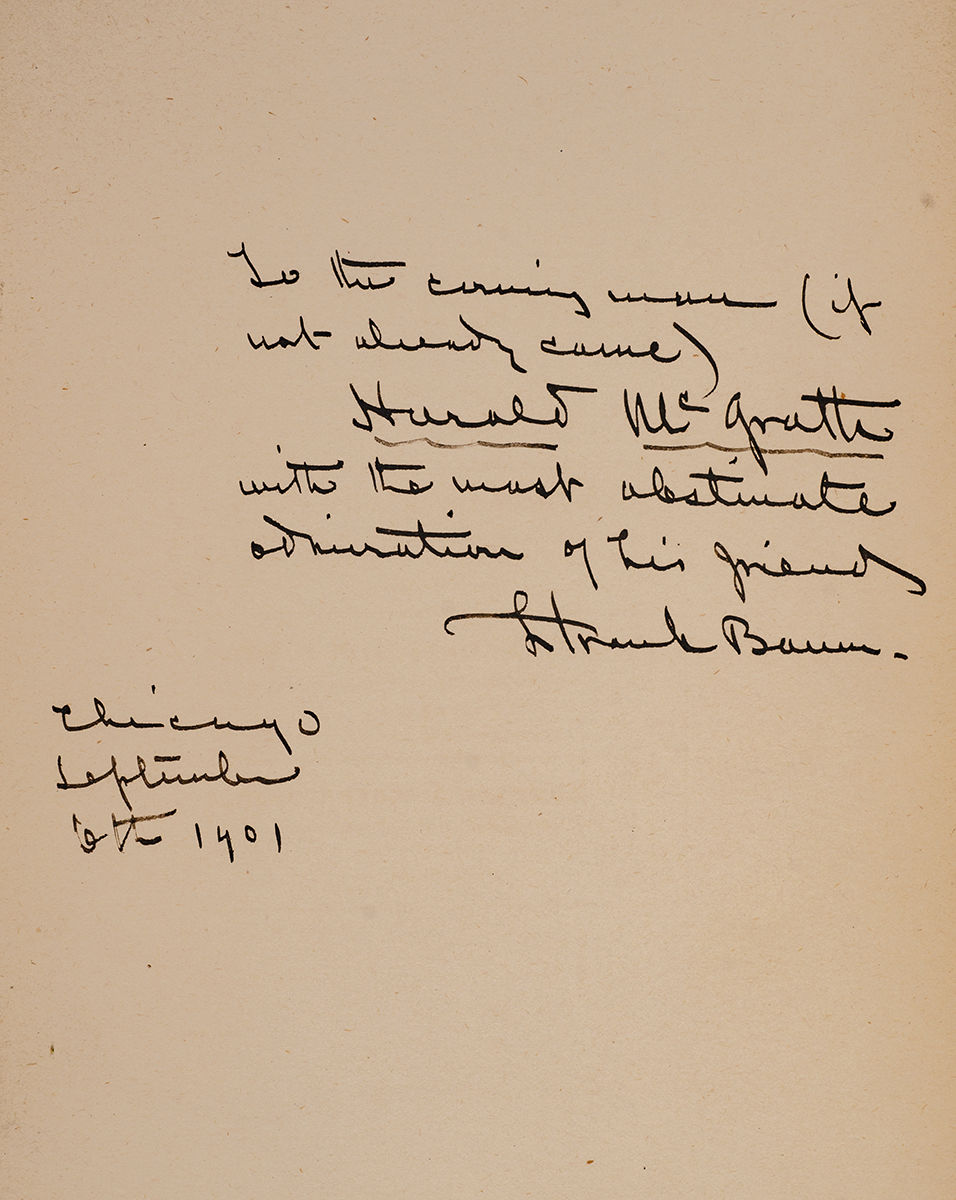 To the coming man (if
not already come)
Harold McGrath
with the most obstinate
admiration of his friend
L Frank Baum.
Chicago
September
6th 1901